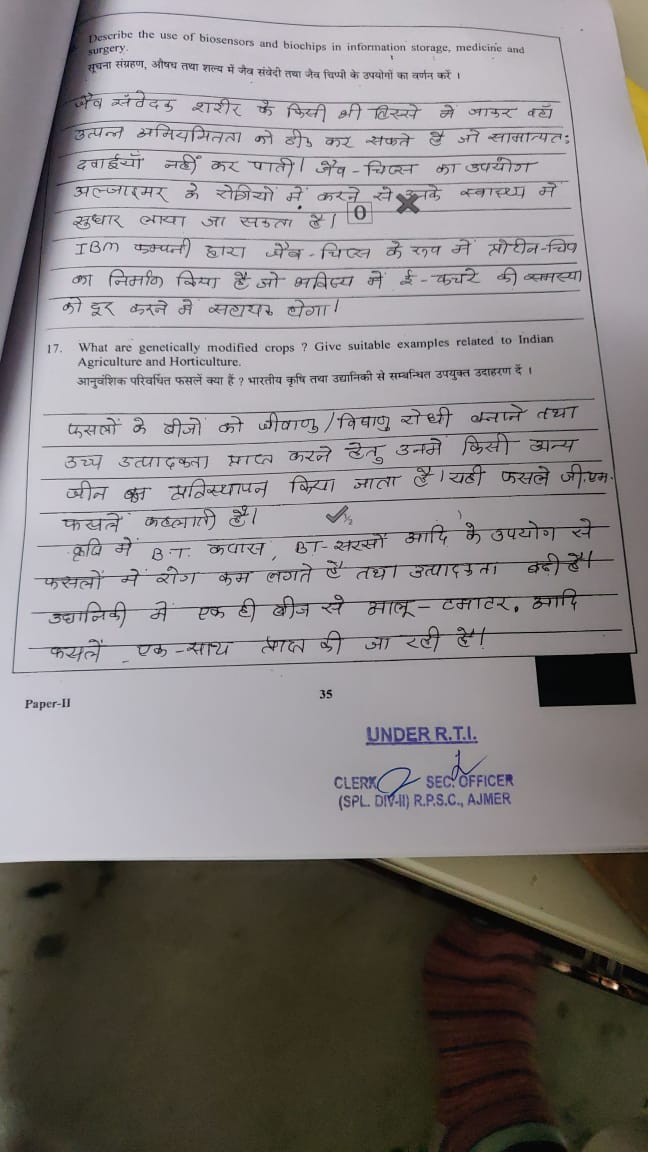 Describe the use of biosensors and biochips in information storage, medicine and
surgery.
सूचना संग्रहण, औषध तथा शल्य में जैव संवेदी तथा जैव चिप्पी के उपयोगों का वर्णन करें ।
जैव संवेदक शरीर के किसी भी हिस्से में जाकर वहाँ
उत्पन्न अनियमितता को ठीक कर सकते है जो सामान्यतः
दवाईयाँ नहीं कर पाती। जैव-चिप्स का उपयोग
अल्जाइमर के रोगियों में करने से उनके स्वास्थ्य में
सुधार लाया जा सकता है। 0
IBM कम्पनी द्वारा जैव-चिप्स के रूप में प्रोटीन-चिप
का निर्माण किया है जो भविष्य में ई-कचरे की समस्या
को दूर करने में सहायक होगा।
17. What are genetically modified crops ? Give suitable examples related to Indian
Agriculture and Horticulture.
आनुवंशिक परिवर्धित फसलें क्या हैं ? भारतीय कृषि तथा उद्यानिकी से सम्बन्धित उपयुक्त उदाहरण दें ।
फसलों के बीजों को जीवाणु/विषाणु रोधी बनाने तथा
उच्च उत्पादकता प्राप्त करने हेतु उनमें किसी अन्य
जीन का प्रतिस्थापन किया जाता है। यही फसले जी.एम.
फसलें कहलाती है।
कृषि में B.T. कपास, BT-सरसों आदि के उपयोग से
फसलों में रोग कम लगते है तथा उत्पादकता बढ़ी है।
उद्यानिकी में एक ही बीज से आलू-टमाटर, आदि
फसलें एक-साथ प्राप्त की जा रही है।
Paper-II
35
UNDER R.T.I.
CLERK SEC. OFFICER
(SPL. DIV-II) R.P.S.C., AJMER